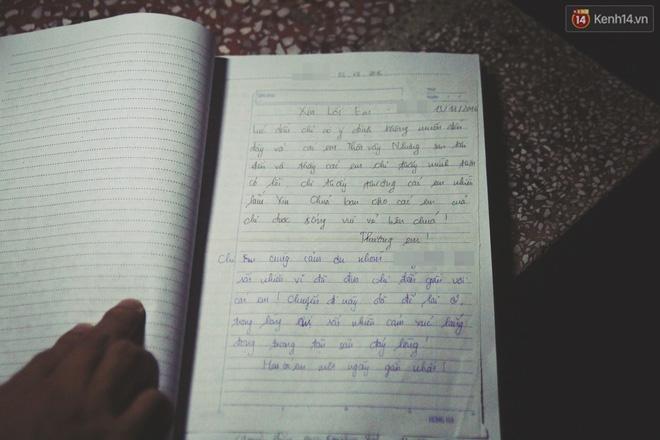 14 Kenh14.vn
Xin Lỗi Em 13/11/2016
Lúc đầu chị có ý định không muốn đến
đây và các em. Thật vậy Nhưng sau khi
đến và thấy các em chị thấy mình thật
có lỗi chị thấy thương các em nhiều
lắm Xin Chúa ban cho các em của
chị được sống vui vẻ bên chúa!
Thương em!
Chị cũng cảm ơn nhóm
rất nhiều vì đã đưa chị đến gần với
các em! Chuyến đi này đã để lại
trong lòng chị rất nhiều cảm xúc lắng
đọng trong tận sâu đáy lòng!
Hẹn các em một ngày gần nhất!
HỒNG HÀ